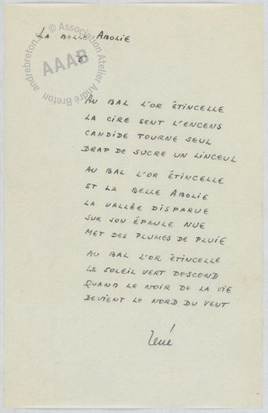 LA BELLE ABOLIE
© Association Atelier André Breton
AAAB
andrebreton.
AU BAL L'OR ÉTINCELLE
LA CIRE SENT L'ENCENS
CANDIDE TOURNE SEUL
DRAP DE SUCRE UN LINCEUL
AU BAL L'OR ÉTINCELLE
ET LA BELLE ABOLIE
LA VALLÉE DISPARUE
SUR SON ÉPAULE NUE
MET DES PLUMES DE PLUIE
AU BAL L'OR ÉTINCELLE
LE SOLEIL VERT DESCEND
QUAND LE NOIR DE LA VIE
DEVIENT LE NORD DU VENT
René